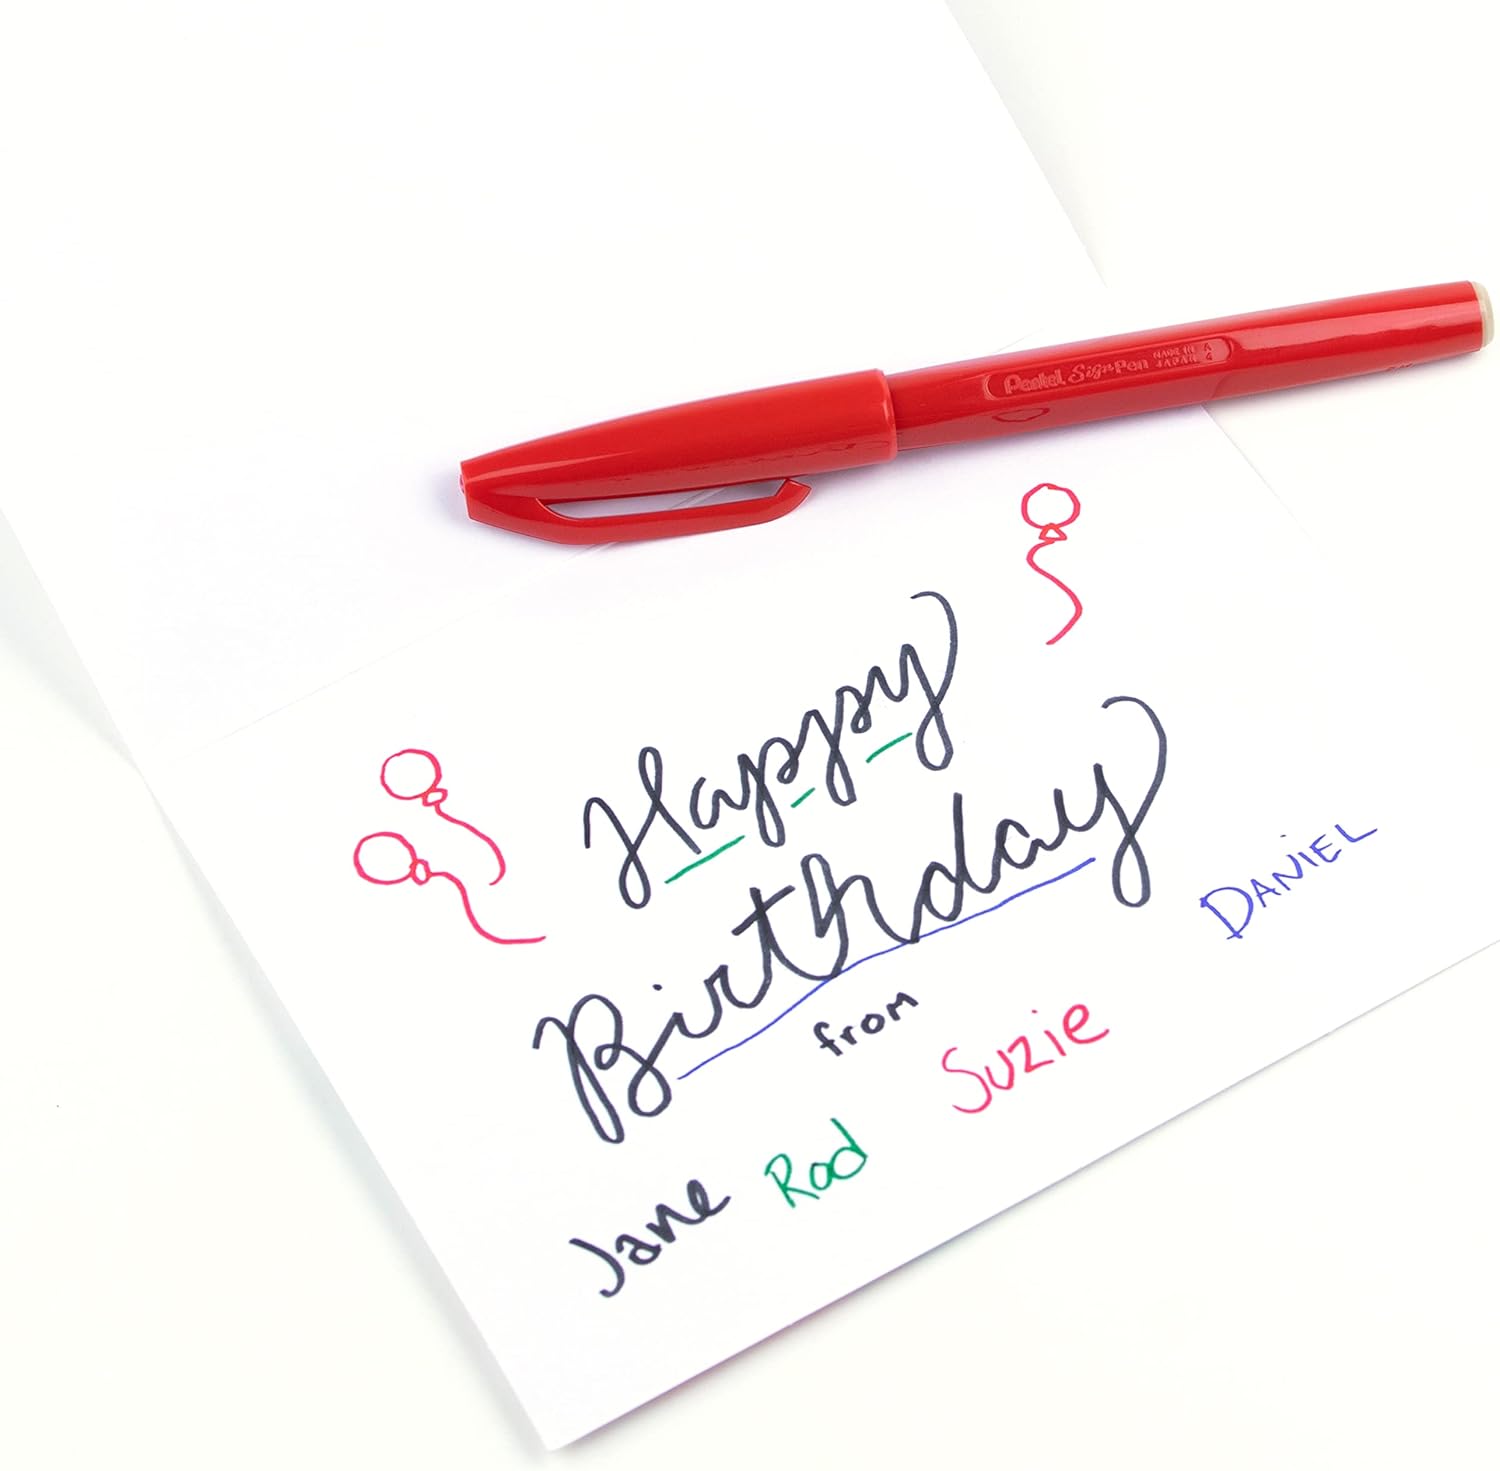 Pentel Sign Pen MADE IN JAPAN A 4
Happy
Birthday
from
Jane Rod Suzie DANIEL